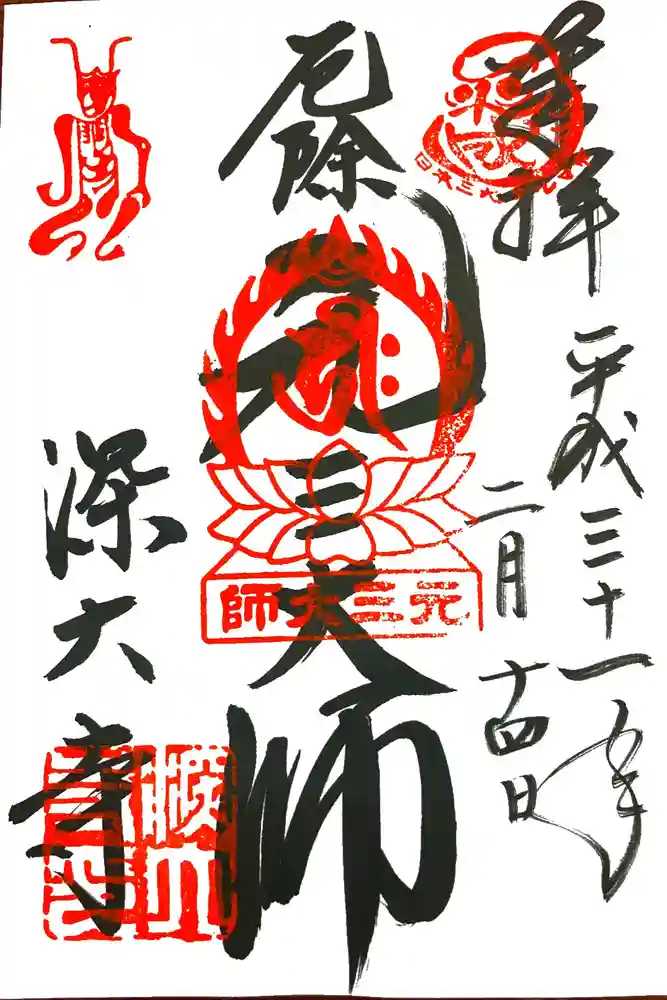 奉拝
平成三十一年
二月十四日
厄除
元三大師
深大寺
師大三元